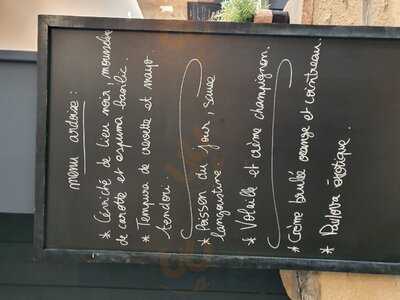 menu ardoise :
* Céviché de lieu noir, mousseline
de carotte et espuma basilic.
* Tempura de crevette et mayo
tandoori.
* Poisson du jour, sauce
langoustine.
* Volaille et crème champignon.
* Crème brulée orange et cointreau.
* Pavlova exotique.